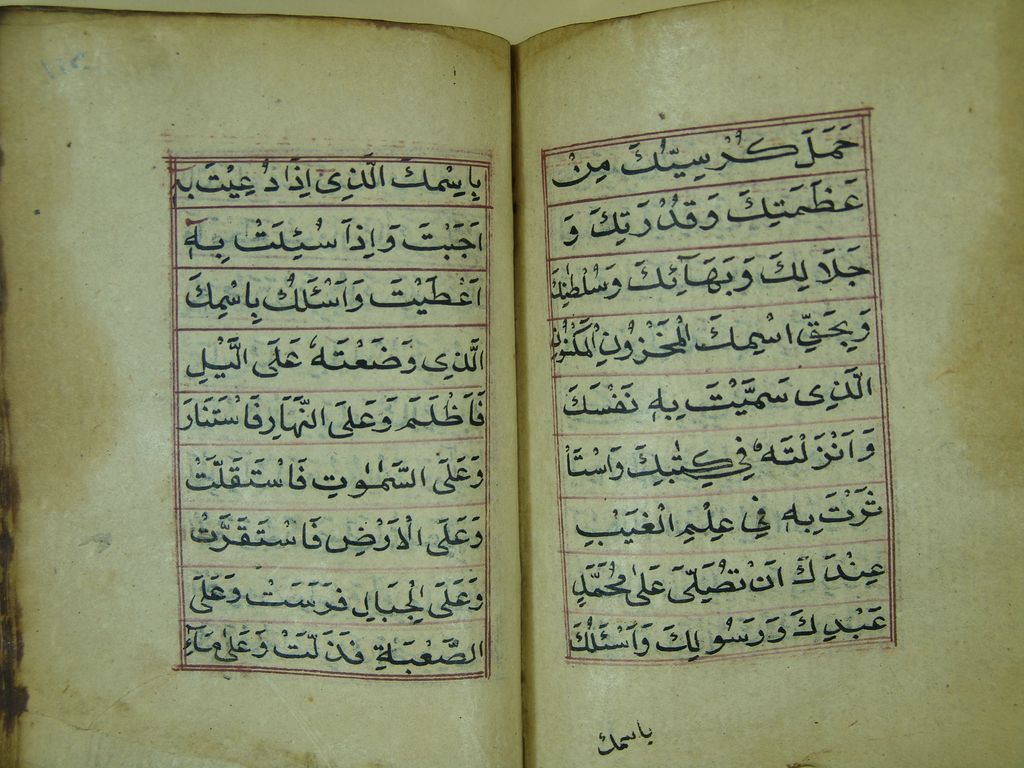 حَمَلَ كُرْسِيُّكَ مِنْ
عَظَمَتِكَ وَقُدْرَتِكَ وَ
جَلَالِكَ وَبَهَآئِكَ وَسُلْطٰنِكَ
وَبِحَقِّ اسْمِكَ الْمَخْزُونِ الْمَكْنُونِ
الَّذِى سَمَّيْتَ بِهٖ نَفْسَكَ
وَاَنْزَلْتَهٗ فِي كِتٰبِكَ وَاسْتَاْ
ثَرْتَ بِهٖ فِي عِلْمِ الْغَيْبِ
عِنْدَكَ اَنْ تُصَلِّىَ عَلٰى مُحَمَّدٍ
عَبْدِكَ وَرَسُولِكَ وَاَسْئَلُكَ
باسمك
بِاسْمِكَ الَّذِى اِذَا دُعِيْتَ بِهٖ
اَجَبْتَ وَاِذَا سُئِلْتَ بِهٖ
اَعْطَيْتَ وَاَسْئَلُكَ بِاسْمِكَ
الَّذِى وَضَعْتَهٗ عَلَى الَّيْلِ
فَاَظْلَمَ وَعَلَى النَّهَارِ فَاسْتَنَارَ
وَعَلَى السَّمٰوٰتِ فَاسْتَقَلَّتْ
وَعَلَى الْاَرْضِ فَاسْتَقَرَّتْ
وَعَلَى الْجِبَالِ فَرَسَتْ وَعَلَى
الصَّعْبَةِ فَذَلَّتْ وَعَلٰى مَآءِ